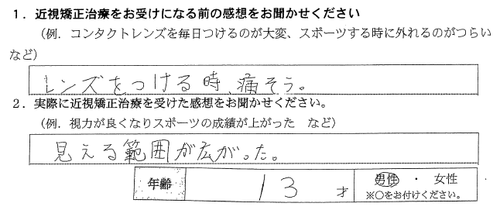 1．近視矯正治療をお受けになる前の感想をお聞かせください
（例．コンタクトレンズを毎日つけるのが大変、スポーツする時に外れるのがつらい
など）
レンズをつける時、痛そう。
2．実際に近視矯正治療を受けた感想をお聞かせください。
（例．視力が良くなりスポーツの成績が上がった　など）
見える範囲が広がった。
年齢　13　才　男性　・　女性
※〇をお付けください。